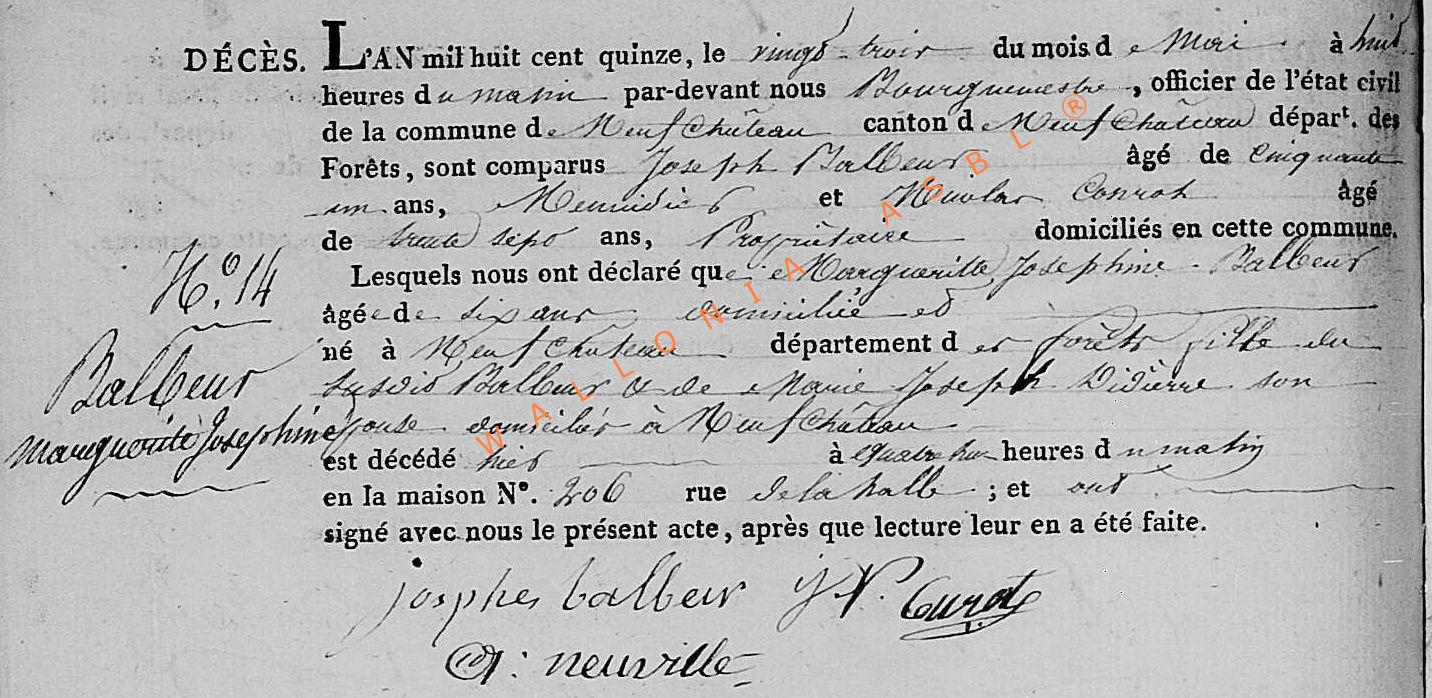 DÉCÈS. L'AN mil huit cent quinze, le vingt trois du mois de Mai à huit
heures du matin par-devant nous Bourguemestre, officier de l'état civil
de la commune de Neufchâteau canton de Neufchâteau départ. des
Forêts, sont comparus Joseph Balbeur âgé de cinquante
un ans, Menuisier et Nicolas Conrot âgé
de trente sept ans, Propriètaire domiciliés en cette commune.
Lesquels nous ont déclaré que Margueritte Josephine Balbeur
âgée de six ans domiciliée et
né à Neufchateau département des forêts fille du
susdit Balbeur & de Marie Joseph Didierre son
épouse domiciliés à Neufchâteau
est décédé hier à quatre heures du matin
en la maison N°. 206 rue de la halle ; et ont
signé avec nous le présent acte, après que lecture leur en a été faite.
N.° 14
Balbeur
Marguerite Josephine
josphes balbeur
neuville
WALLONIA ASBL ®